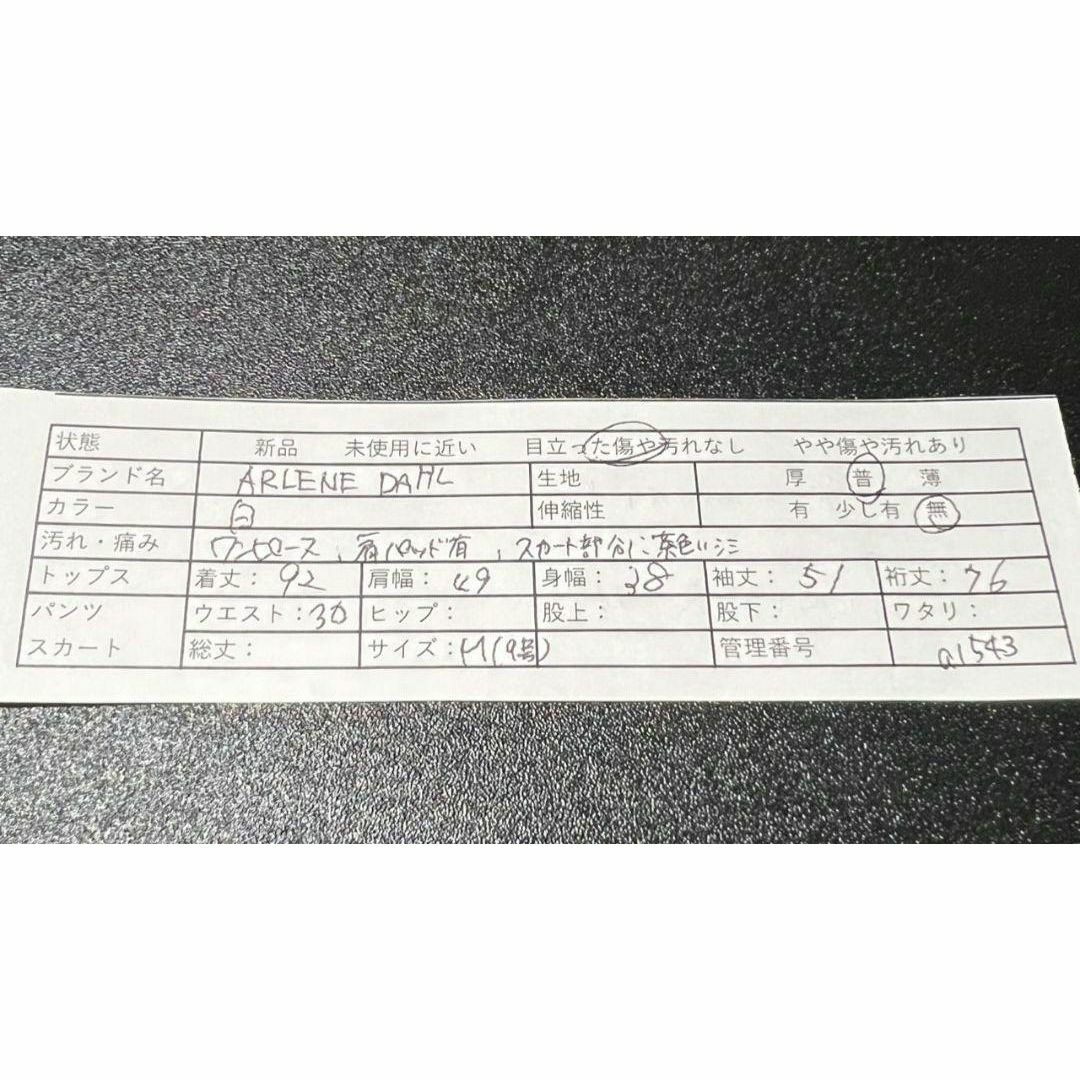 状態 新品 未使用に近い 目立った傷や汚れなし やや傷や汚れあり
ブランド名 ARLENE DAHL 生地 厚 普 薄
カラー 白 伸縮性 有 少し有 無
汚れ・痛み ワンピース、肩パッド有、スカート部分に茶色いシミ
トップス 着丈:92 肩幅:49 身幅:38 袖丈:51 裄丈:76
パンツ ウエスト:30 ヒップ: 股上: 股下: ワタリ:
スカート 総丈: サイズ:M(9号) 管理番号 a1543